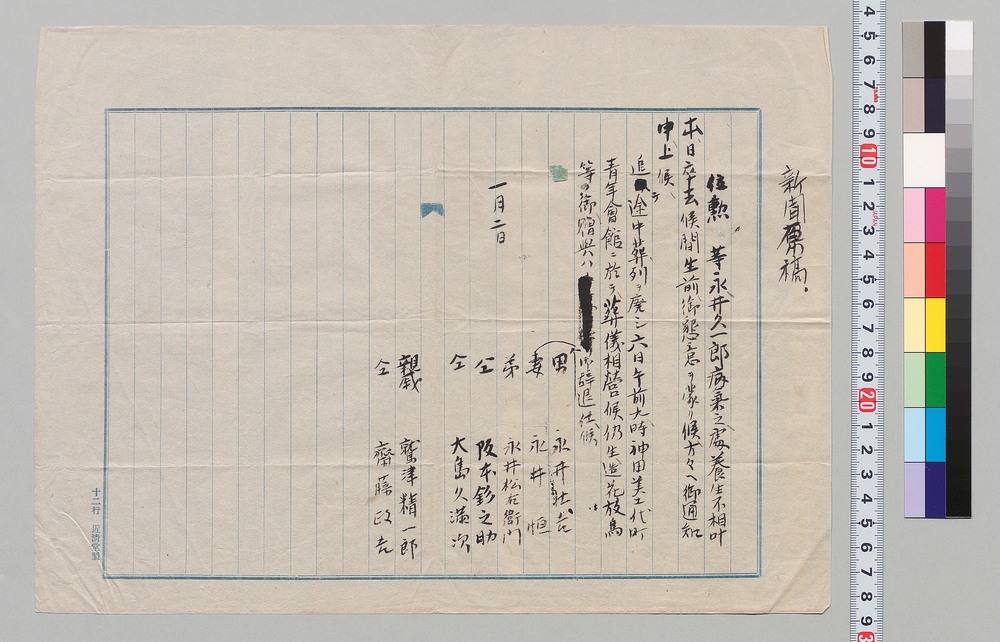 新聞原稿
位勲　等永井久一郎病気之處養生不相叶
本日卒去候間生前御懇意ヲ蒙リ候方々ヘ御通知
申上候
追テ途中葬列ヲ廃シ六日午前九時神田美土代町
青年會館ニ於テ葬儀相営候仍生造花放鳥
等の御贈與ハ御辞退仕候
一月二日
男　永井壮吉
妻　永井恒
弟　永井松右衛門
仝　阪本釤之助
仝　大島久満次
親戚　鷲津精一郎
仝　齋藤政吉
十二行　近清堂製
4 5 6 7 8 9 10 1 2 3 4 5 6 7 8 9 20 1 2 3 4 5 6 7 8 9